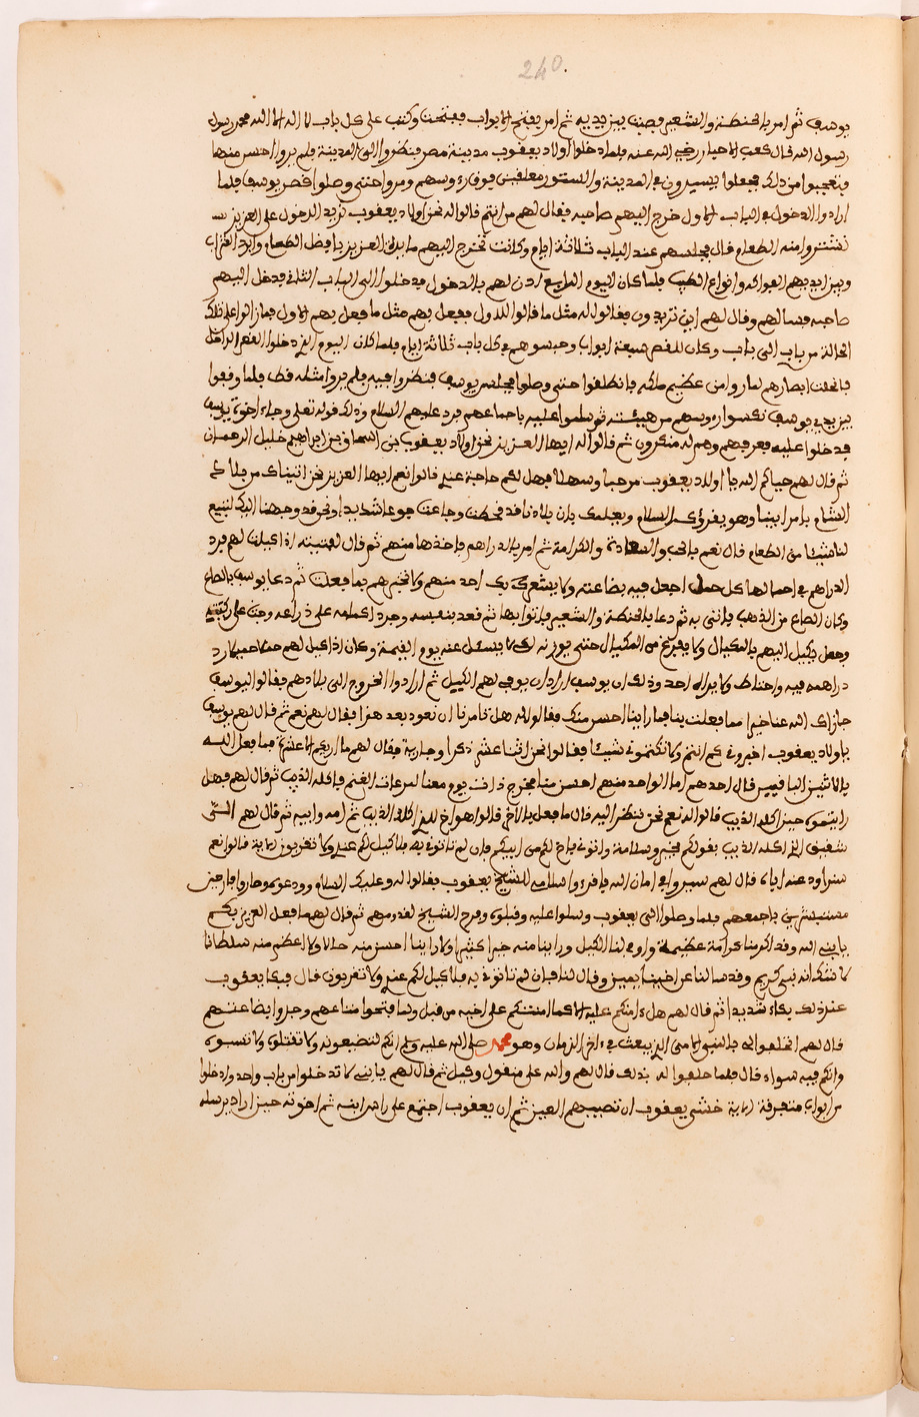 240.
يوسف ثم امر بالحنطة والشعير فصبت بين يديه ثم امر بفتح الابواب ففتحت وكتب على كل باب لا اله الا الله محمد رسول
رسول الله قال كعب الاحبار رضي الله عنه فلما دخلوا اولاد يعقوب مدينة مصر فنظروا الى المدينة فلم يروا احسن منها
فتعجبوا من ذلك فجعلوا يسيرون في المدينة والستور معلقين فوق رءوسهم ومروا حتى وصلوا قصر يوسف فلما
ارادوا الدخول في الباب الاول خرج اليهم صاحبه فقال لهم من انتم قالوا له نحن اولاد يعقوب نريد الدخول على العزيز
نشتروا منه الطعام قال فجلسهم عند الباب ثلاثة ايام وكانت تخرج اليهم مايدة العزيز بافضل الطعام
وبين ايديهم الفواكه وانواع الطيب فلما كان اليوم الرابع اذن لهم بالدخول فدخلوا الى الباب الثاني فدخل اليهم
صاحبه فسالهم وقال لهم اين تريدون فقالوا له مثل ما قالوا للاول ففعل بهم مثل ما فعل بهم الاول فما زالوا على تلك
الحالة من باب الى باب وكان للقصر سبعة ابواب وحبسوهم في كل باب ثلاثة ايام فلما كان اليوم الذي دخلوا القصر
ابصارهم لما روا من عظيم ملكه فانطلقوا حتى وصلوا مجلس يوسف فنظروا فيه فلم يروا مثله قط فلما وقفوا
بين يدي يوسف نكسوا رءوسهم من هيبته ثم سلموا عليه باجماعهم فرد عليهم السلام وذلك قوله تعلى وجاء اخوة يوسف
فدخلوا عليه فعرفهم وهم له منكرون ثم قالوا له ايها العزيز نحن اولاد يعقوب بن اسحاق بن ابراهيم خليل الرحمان
ثم قال لهم حياكم الله يا اولاد يعقوب مرحبا وسهلا فهل لكم حاجة عندي قالوا نعم ايها العزيز نحن اتيناك من بلاد
الشام بامر ابينا وهو يقرؤك السلام ويعلمك بان بلادنا قد قحطت وجاعت جوعا شديدا ونحن قد وجهنا اليك لتبيع
لنا شيئا من الطعام قال نعم والكرامة ثم امر بالدراهم فاخذها منهم ثم قال لفتيته اذا كيلت لهم فرد
الدراهم في احمالها كل حمل اجعل فيه بضاعته ولا يشعر بك احد منهم ولا تخبرهم بما فعلت ثم دعا يوسف بالصاع
وكان الصاع من الذهب فاتى به ثم دعا بالحنطة والشعير فاتوا بها ثم قعد بنفسه وجرد اكمامه على ذراعه وجثا على ركبتيه
وجعل يكيل اليهم بالمكيال ولا يفرغ من المكيال حتى يوزنه لكي لا يسئل عنه يوم القيمة وكان اذا كيل لهم
دراهمه فيه واحتاط ولا يراه احد وذلك ان يوسف اراد ان يوفي لهم الكيل ثم ارادوا الخروج الى بلادهم فقالوا ليوسف
جازاك الله عنا خيرا مما فعلت بنا فما راينا احسن منك فقالوا له هل تامرنا ان نعود بعد هذا فقال لهم نعم ثم قال لهم يوسف
يا ولاد يعقوب اخبروني كم انتم ولا تكتموني شيئا فقالوا نحن اثنا عشر ذكرا وجارية فقال لهم ما اريكم الا عشرة فما فعل الله
بالاثنين الباقيين قال احدهم اما الواحد منهم احسن منا فخرج ذات يوم معنا لمرعات الغنم فاكله الذيب ثم قال لهم فهل
رايتموه حين اكله الذيب قالوا له نعم نحن ننظر اليه قال ما فعل بالاخر قالوا هو اخ للذي اكله الذيب من امه وابيه ثم قال لهم
شفيق الذي اكله الذيب بقولكم وسلامة واتوني باخ لكم من ابيكم فان لم تاتوني به فلا كيل لكم عندي ولا تقربون الاية قالوا نعم
سنراود عنه اباه قال لهم سيروا في امان الله فاقرءوا سلامي للشيخ يعقوب فقالوا له وعليك السلام وودعوه وطاروا فارحين
مستبشرين باجمعهم فلما وصلوا الى يعقوب وسلموا عليه وقبلوه وفرح الشيخ لقدومهم ثم قال لهم ما فعل العزيز بكم
يا نبي الله وقد اكرمنا كرامة عظيمة واوفى لنا الكيل وراينا منه خيرا كثيرا ولا راينا احسن منه حالا ولا اعظم منه سلطانا
لا نشك انه نبي كريم وقد سالنا عن اخينا بنيمين وقال لنا فان لم تاتوني به فلا كيل لكم عندي ولا تقربون قال فبكا يعقوب
عند ذلك بكاء شديدا ثم قال لهم هل ءامنكم عليه الا كما امنتكم على اخيه من قبل ولما فتحوا متاعهم وجدوا بضاعتهم
قال لهم احلفوا لي بالنبي الامي الذي يبعث في ءاخر الزمان وهو محمد صلى الله عليه وسلم انكم لا تضيعونه ولا تقتلوه ولا تنسوه
وانكم فيه سواء قال فلما حلفوا له بذلك قال لهم والله على ما نقول وكيل ثم قال لهم يا بني لا تدخلوا من باب واحد وادخلوا
من ابواب متفرقة الاية خشي يعقوب ان تصيبهم العين ثم ان يعقوب اجتمع على راس ابنه ثم اخوته حين اراد يرسله